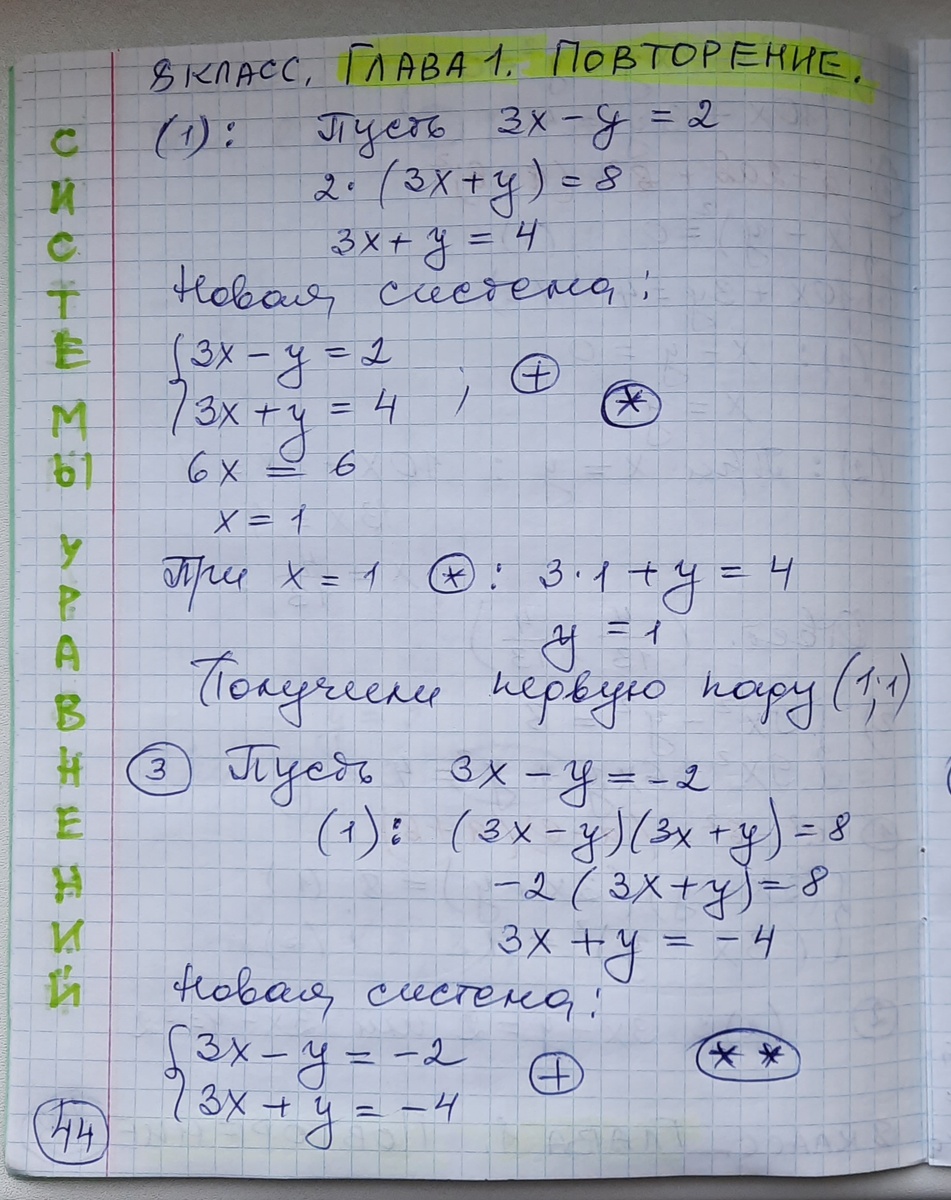 8 КЛАСС. ГЛАВА 1. ПОВТОРЕНИЕ.
СИСТЕМЫ УРАВНЕНИЙ
(1): Пусть 3x - y = 2
2 · (3x + y) = 8
3x + y = 4
Новая система:
{3x - y = 2
{3x + y = 4 ; + *
6x = 6
x = 1
При x = 1 *: 3·1 + y = 4
y = 1
Получили первую пару (1;1)
3 Пусть 3x - y = -2
(1): (3x - y)(3x + y) = 8
-2(3x + y) = 8
3x + y = -4
Новая система:
{3x - y = -2 + **
{3x + y = -4
44